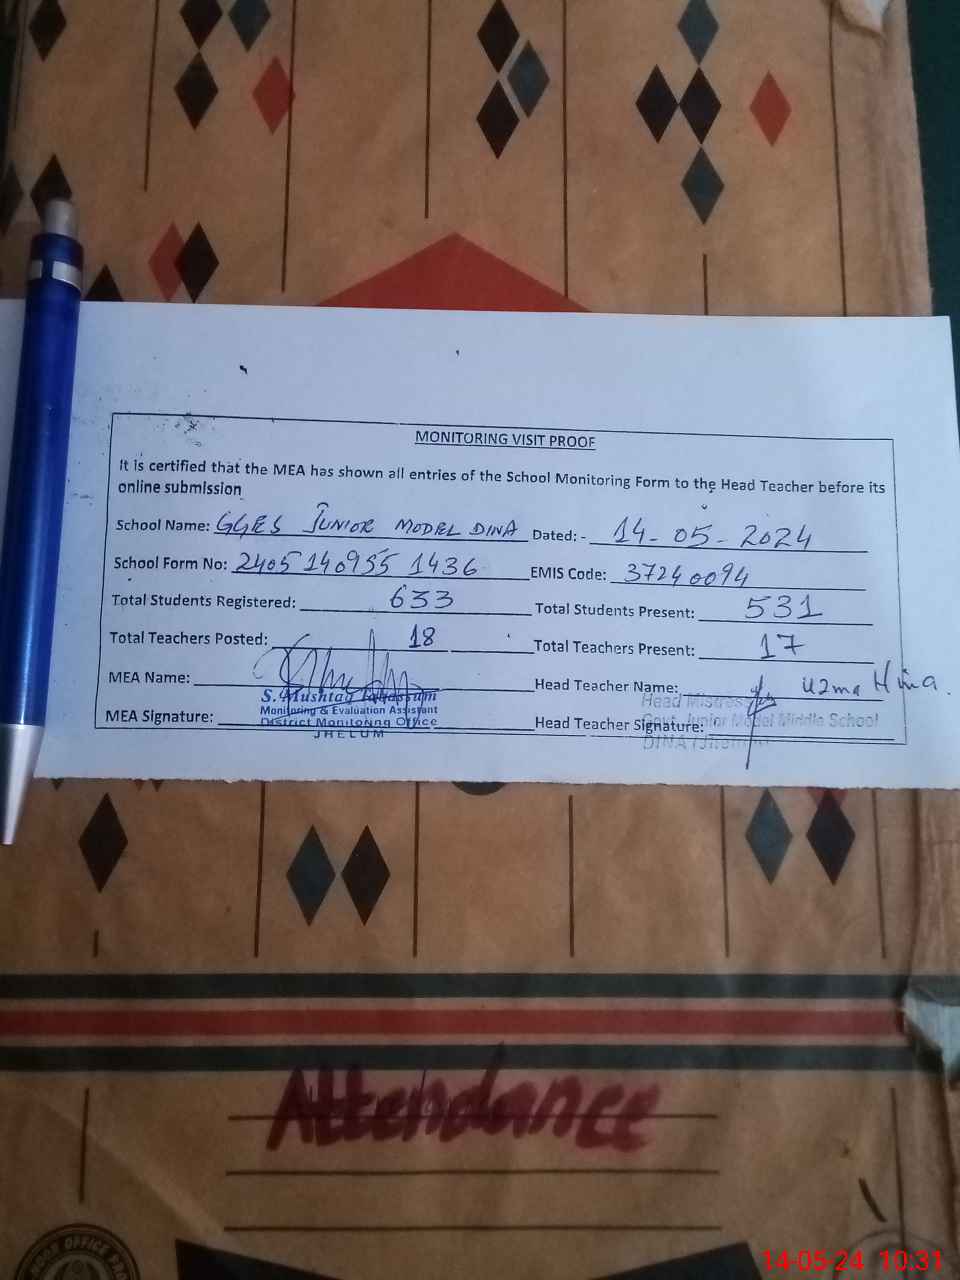 MONITORING VISIT PROOF
It is certified that the MEA has shown all entries of the School Monitoring Form to the Head Teacher before its
online submission
School Name: GGES JUNIOR MODEL DINA Dated: - 14-05-2024
School Form No: 2405140955 1436 EMIS Code: 37240094
Total Students Registered: 633 Total Students Present: 531
Total Teachers Posted: 18 Total Teachers Present: 17
MEA Name: Head Teacher Name: Uzma Hina.
S. Mushtaq Tabassum
Monitoring & Evaluation Assistant
District Monitoring Office
JHELUM
Head Mistress
Govt. Junior Model Middle School
DINA (Jhelum)
MEA Signature: Head Teacher Signature:
Attendance
14-05-24 10:31